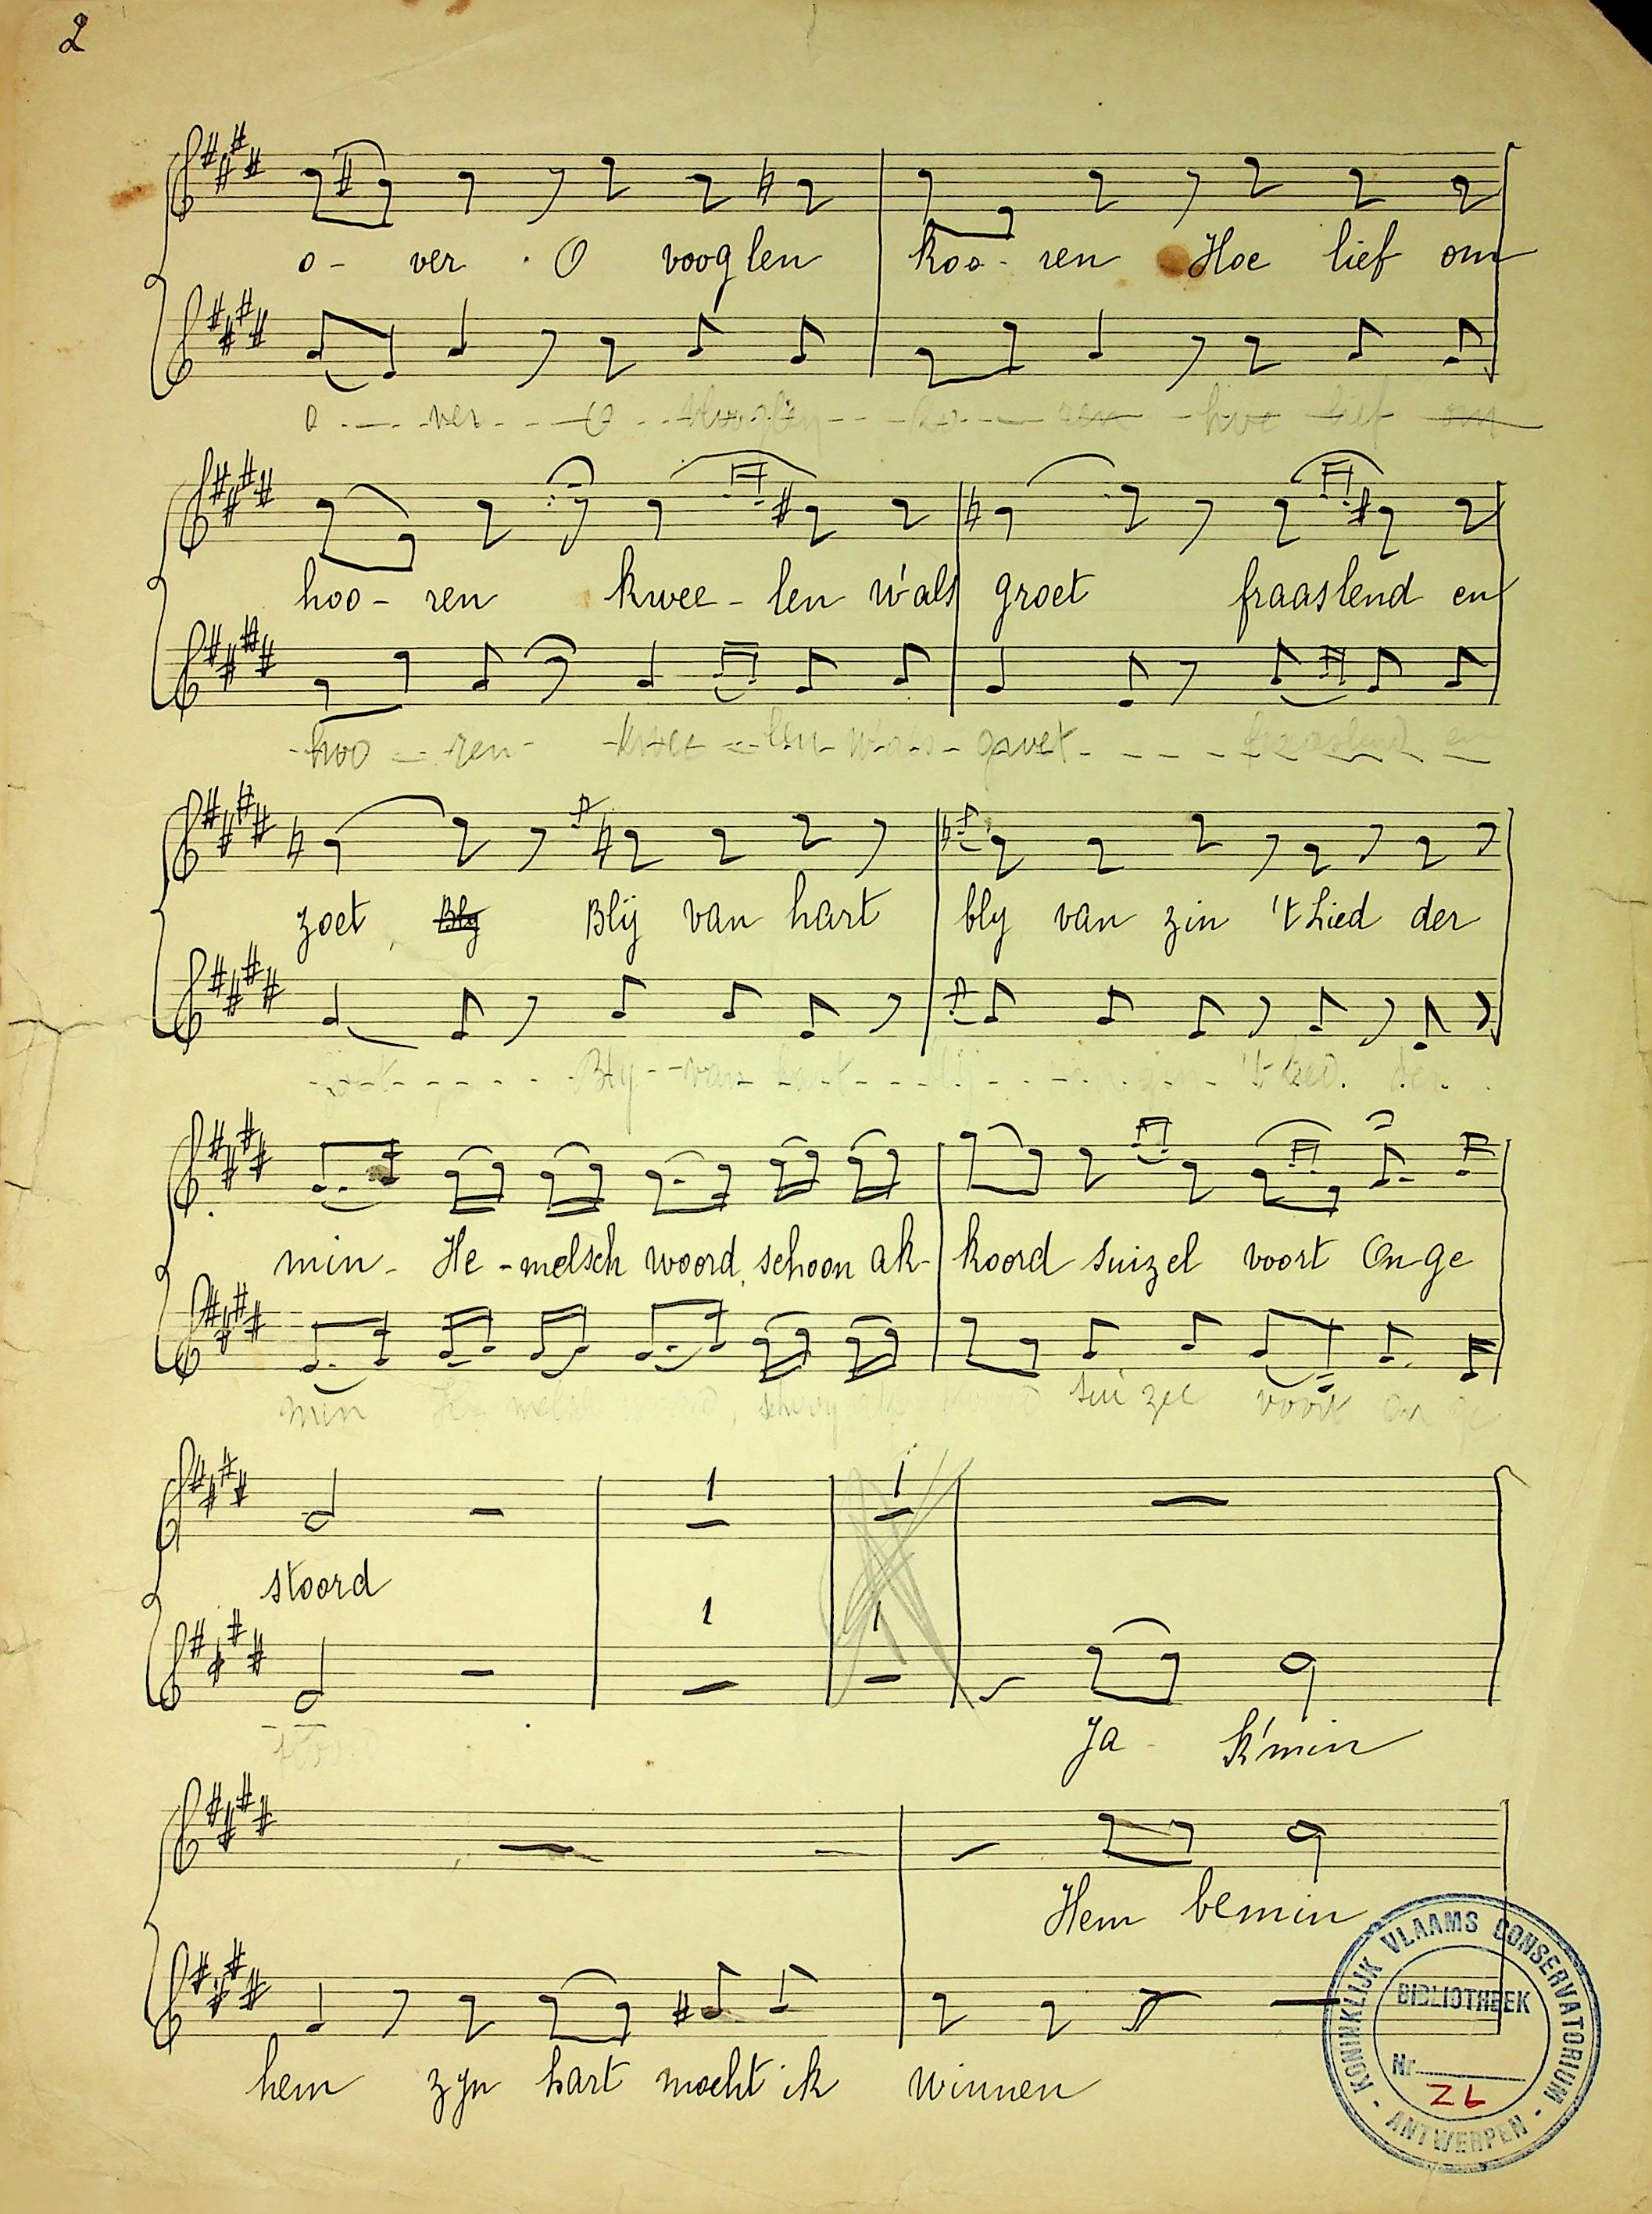 2
o- ver. O vooglen koo- ren Hoe lief om
o ver O vooglen ko ren hoe lief om
hoo- ren kwee- len w'als groet fraaslend en
hoo ren kwee len w'als groet fraaslend en
zoet, Bly Blij van hart bly van zin 't Lied der
zoet Bly van hart blij van zin 't Lied der
min- He-melsch woord, schoon ak- koord suizel voort On-ge
min He melsch woord, schoon ak koord suizel voort on ge
1 1
stoord
1 1
stoord Ja- k'min
Hem bemin
hem zyn hart mocht ik winnen
KONINKLIJK VLAAMS CONSERVATORIUM - ANTWERPEN -
BIBLIOTHEEK
Nr
26